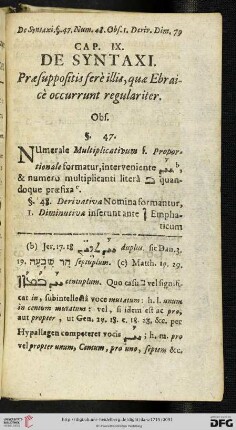 De Syntaxi. §. 47. Num. 48. Obs. 1. Deriv. Dim. 79
CAP. IX.
DE SYNTAXI.
Præsuppositis ferè illis, quæ Ebrai-
cè occurrunt regulariter.
Obs.
§. 47.
NUmerale Multiplicativum s. Propor-
tionale formatur, interveniente
& numero multiplicanti literâ ב quan-
doque præfixa c.
§. 48. Derivativa Nomina formantur,
1. Diminutiva inserunt ante Empha-
ticum
(b) Jer. 17. 18 duplus. sic Dan. 3.
19. חד שבעה septuplum. (c) Matth. 19. 29.
centuplum. Quo casu ב vel signifi-
cat in, subintellectâ voce mutatum: h. l. unum
in centum mutatum: vel, si idem est ac pro,
aut propter, ut Gen. 29. 18. c. 18. 28. &c. per
Hypallagen competeret vocis ; h. m. pro
vel propter unum, Centum, pro uno, septem &c.
DFG